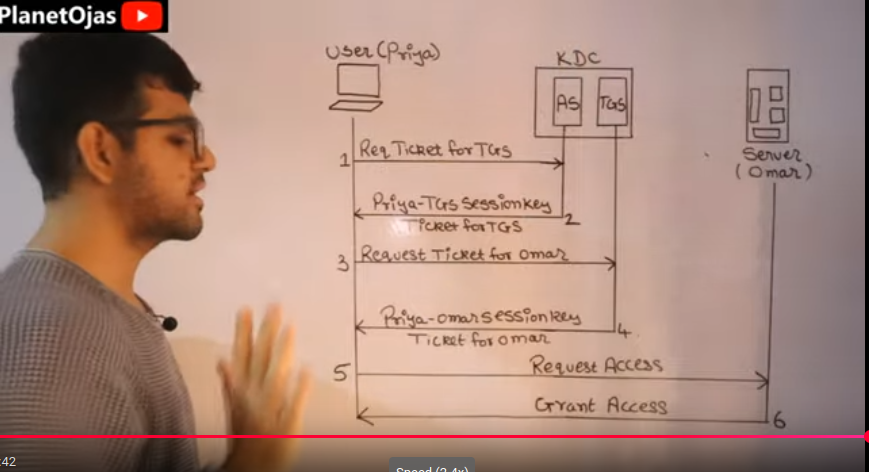 PlanetOjas
User (Priya)
KDC
AS
TGS
Server
(Omar)
1
Req Ticket for TGS
Priya-TGS Session key
Ticket for TGS
2
3
Request Ticket for omar
Priya-omar session key
Ticket for omar
4
5
Request Access
Grant Access
6
:42
Speed (2.4x)